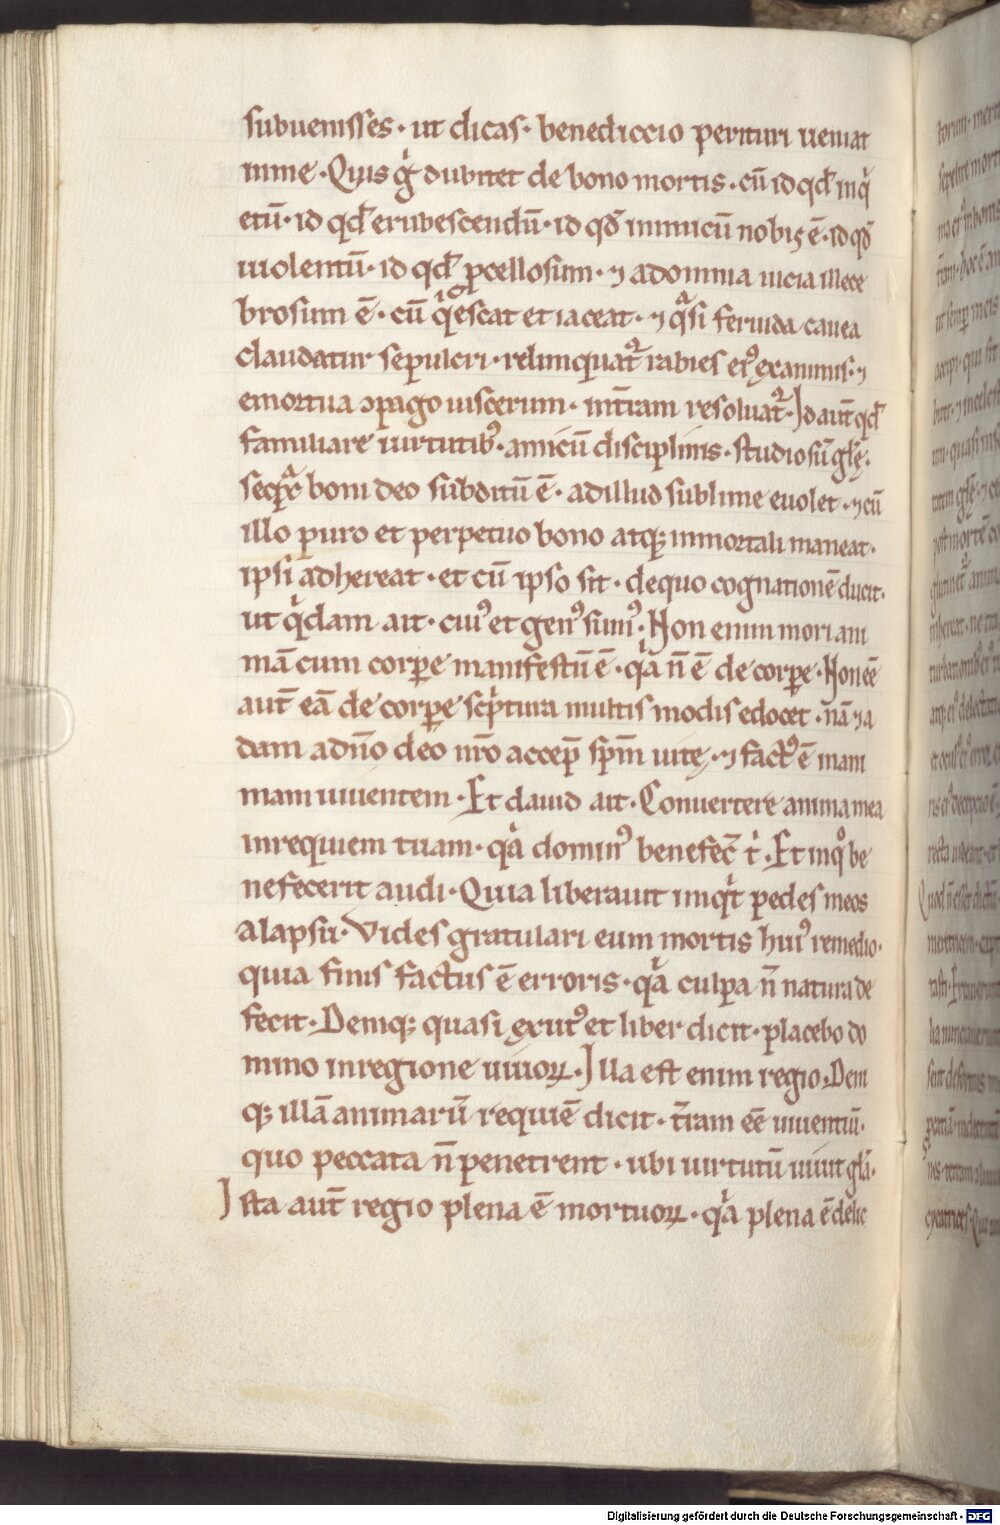 subuenisses · ut dicas · benediccio perituri ueniat
in me · Quis gͥ dubitet de bono mortis · cū id qd̕ inqͥ
etū · id qd̕ erubescendū · id qd̕ inimicū nobis ē · id qd̕
uiolentū · id qd̕ ꝓcellosum · ⁊ ad omnia uicia illece
brosum ē · cū qͥescat et iaceat · ⁊ qͣsi feruida cauea
claudatur sepulcri · relinquat᷑ rabies eiꝰ exanimis · ⁊
emortua ɔpago uiscerum · in t̄ram resoluat᷑ · Id aut̄ qd̕
familiare uirtutibꝰ · amicū disciplinis · studiosū gl̄ę ·
seqͣx boni deo subditū ē · ad illud sublime euolet · ⁊ cū
illo puro et perpetuo bono atq; inmortali maneat ·
ipsi adhereat · et cū ipso sit · de quo cognationē ducit ·
ut qͥdam ait · cuiꝰ et genꝰ sumꝰ · Non enim mori ani
mā cum corꝑe manifestū ē · qͥa n̄ ē de corꝑe · Non eē
aut̄ eā de corꝑe scͥptura multis modis edocet · nā ⁊ a
dam a dn̄o deo nr̄o accep̄ spm̄ uitę · ⁊ factꝰ ē in ani
mam uiuentem · Et dauid ait · Conuertere anima mea
in requiem tuam · qͥa dominꝰ benefec̄ tͥ · Et in qͦ be
nefecerit audi · Quia liberauit inqͥt pedes meos
a lapsu · Vides gratulari eum mortis huiꝰ remedio ·
quia finis factus ē erroris · qͥa culpa n̄ natura de
fecit · Deniq; quasi exutꝰ et liber dicit · placebo do
mino in regione uiuoꝝ · Illa est enim regio · Deni
q; illā animarū requiē dicit · t̄ram eē uiuentiū ·
quo peccata n̄ penetrent · ubi uirtutū uiuit gl̄a ·
Ista aut̄ regio plena ē mortuoꝝ · qͥa plena ē delic
Digitalisierung gefördert durch die Deutsche Forschungsgemeinschaft - DFG